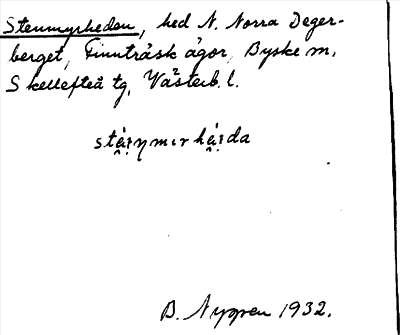 Stenmyrheden, hed N. Norra Deger-
berget, Finnträsk ägor, Byske m,
Skellefteå tg, Västerb. l.
B. Nygren 1932.